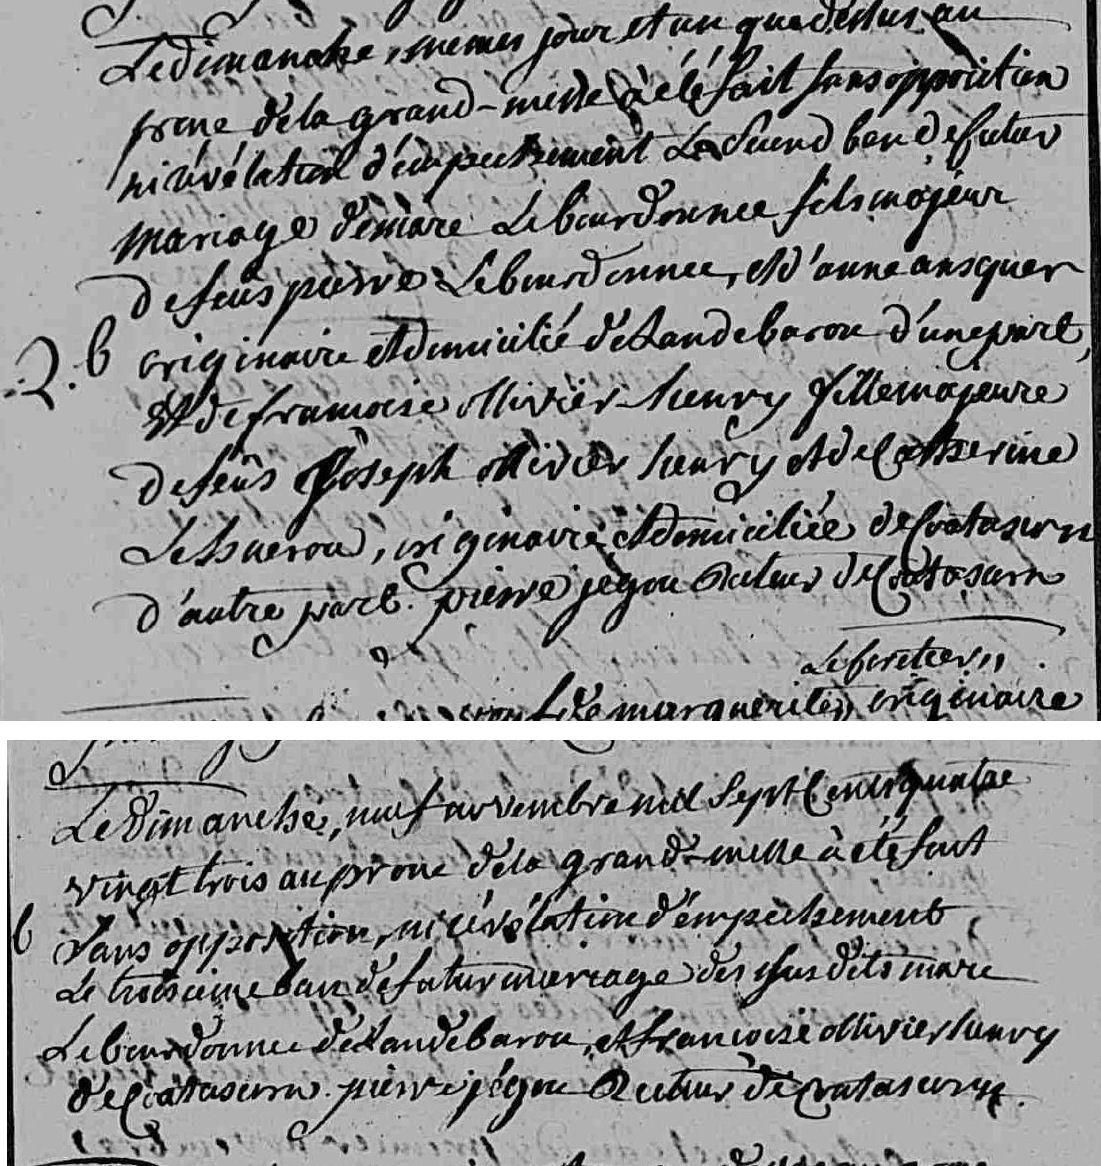 Le dimanche, memes jour et an que dessus au
prone de la grand-messe à été fait sans opposition
ni révélation d'empechement Le second ban de futur
mariage de marc Lebourdonnec fils majeur
de feus pierre Lebourdonnec, et d'anne ansquer
2. b originaire et domicilié de Landebaron d'une part,
Et de francoise ollivier-henry fille majeure
de feus joseph ollivier henry et de Catherine
Le huerou, originaire et domiciliée de Coatascorn
d'autre part. pierre jegou Recteur de Coatascorn
de marguerite, originaire
Le Dimanche, neuf novembre mil sept Cent quatre
vingt trois au prone de la grand-messe à été fait
b sans opposition, ni révélation d'empechement
Le troisieme ban de futur mariage des sus dits marc
Lebourdonnec de Landebaron, et francoise ollivier henry
de Coatascorn. pierre jégou Recteur de Coatascorn.